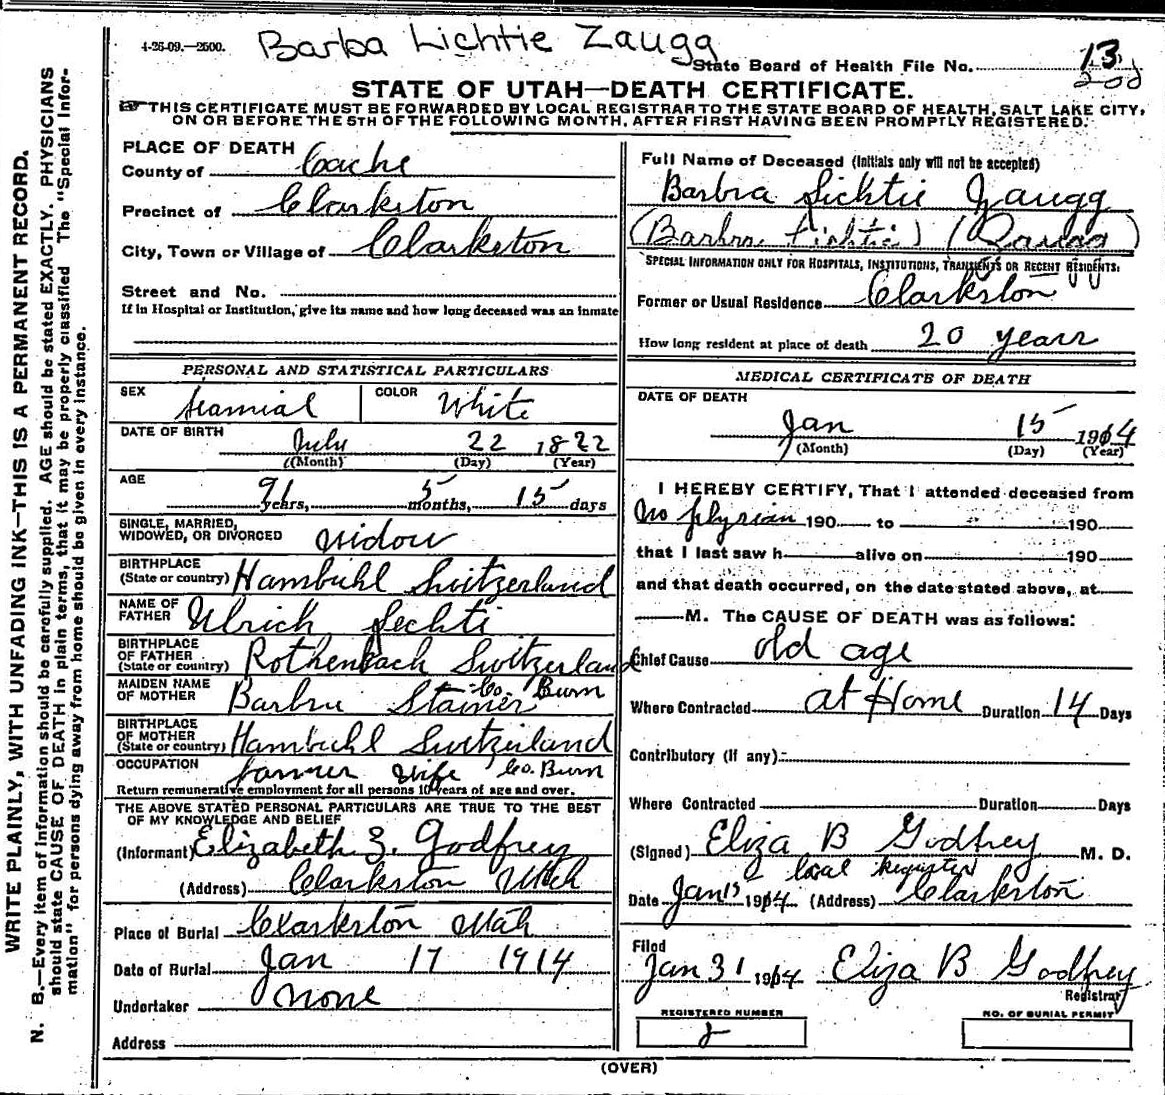 4-26-09.—2500.
Barba Lichtie Zaugg
State Board of Health File No. 13
200
STATE OF UTAH—DEATH CERTIFICATE.
THIS CERTIFICATE MUST BE FORWARDED BY LOCAL REGISTRAR TO THE STATE BOARD OF HEALTH, SALT LAKE CITY,
ON OR BEFORE THE 5TH OF THE FOLLOWING MONTH, AFTER FIRST HAVING BEEN PROMPTLY REGISTERED.
WRITE PLAINLY, WITH UNFADING INK—THIS IS A PERMANENT RECORD.
N. B.—Every item of information should be carefully supplied. AGE should be stated EXACTLY. PHYSICIANS
should state CAUSE OF DEATH in plain terms, that it may be properly classified The "Special Infor-
mation" for persons dying away from home should be given in every instance.
PLACE OF DEATH
County of Cache
Precinct of Clarkston
City, Town or Village of Clarkston
Street and No.
If in Hospital or Institution, give its name and how long deceased was an inmate
PERSONAL AND STATISTICAL PARTICULARS
SEX
COLOR White
DATE OF BIRTH July 22 1822
(Month) (Day) (Year)
AGE
91 years, 5 months, 15 days
SINGLE, MARRIED,
WIDOWED, OR DIVORCED widow
BIRTHPLACE
(State or country) Hambuhl Switzerland
NAME OF
FATHER Ulrich Lechti
BIRTHPLACE
OF FATHER
(State or country) Rothenbach Switzerland
Co. Burn
MAIDEN NAME
OF MOTHER Barbra Stainer
BIRTHPLACE
OF MOTHER
(State or country) Hambuhl Switzerland
OCCUPATION farmer wife Co. Burn
Return remunerative employment for all persons 10 years of age and over.
THE ABOVE STATED PERSONAL PARTICULARS ARE TRUE TO THE BEST
OF MY KNOWLEDGE AND BELIEF
(Informant) Elizabeth Z. Godfrey
(Address) Clarkston Utah
Place of Burial Clarkston Utah
Date of Burial Jan 17 1914
Undertaker None
Address
Full Name of Deceased (Initials only will not be accepted)
Barbra Lichtie Zaugg
(Barbra Lichtie) (Zaugg)
SPECIAL INFORMATION ONLY FOR HOSPITALS, INSTITUTIONS, TRANSIENTS OR RECENT RESIDENTS:
Former or Usual Residence Clarkston
How long resident at place of death 20 years
MEDICAL CERTIFICATE OF DEATH
DATE OF DEATH
Jan 15 1914
(Month) (Day) (Year)
I HEREBY CERTIFY, That I attended deceased from
No 190 to 190
that I last saw h alive on 190
and that death occurred, on the date stated above, at
M. The CAUSE OF DEATH was as follows:
Chief Cause old age
Where Contracted at Home Duration 14 Days
Contributory (if any)
Where Contracted Duration Days
(Signed) Eliza B Godfrey M. D.
local Register
Date Jan 15 1914 (Address) Clarkston
Filed
Jan 31 1914 Eliza B Godfrey
Registrar
REGISTERED NUMBER
2
NO. OF BURIAL PERMIT
(OVER)